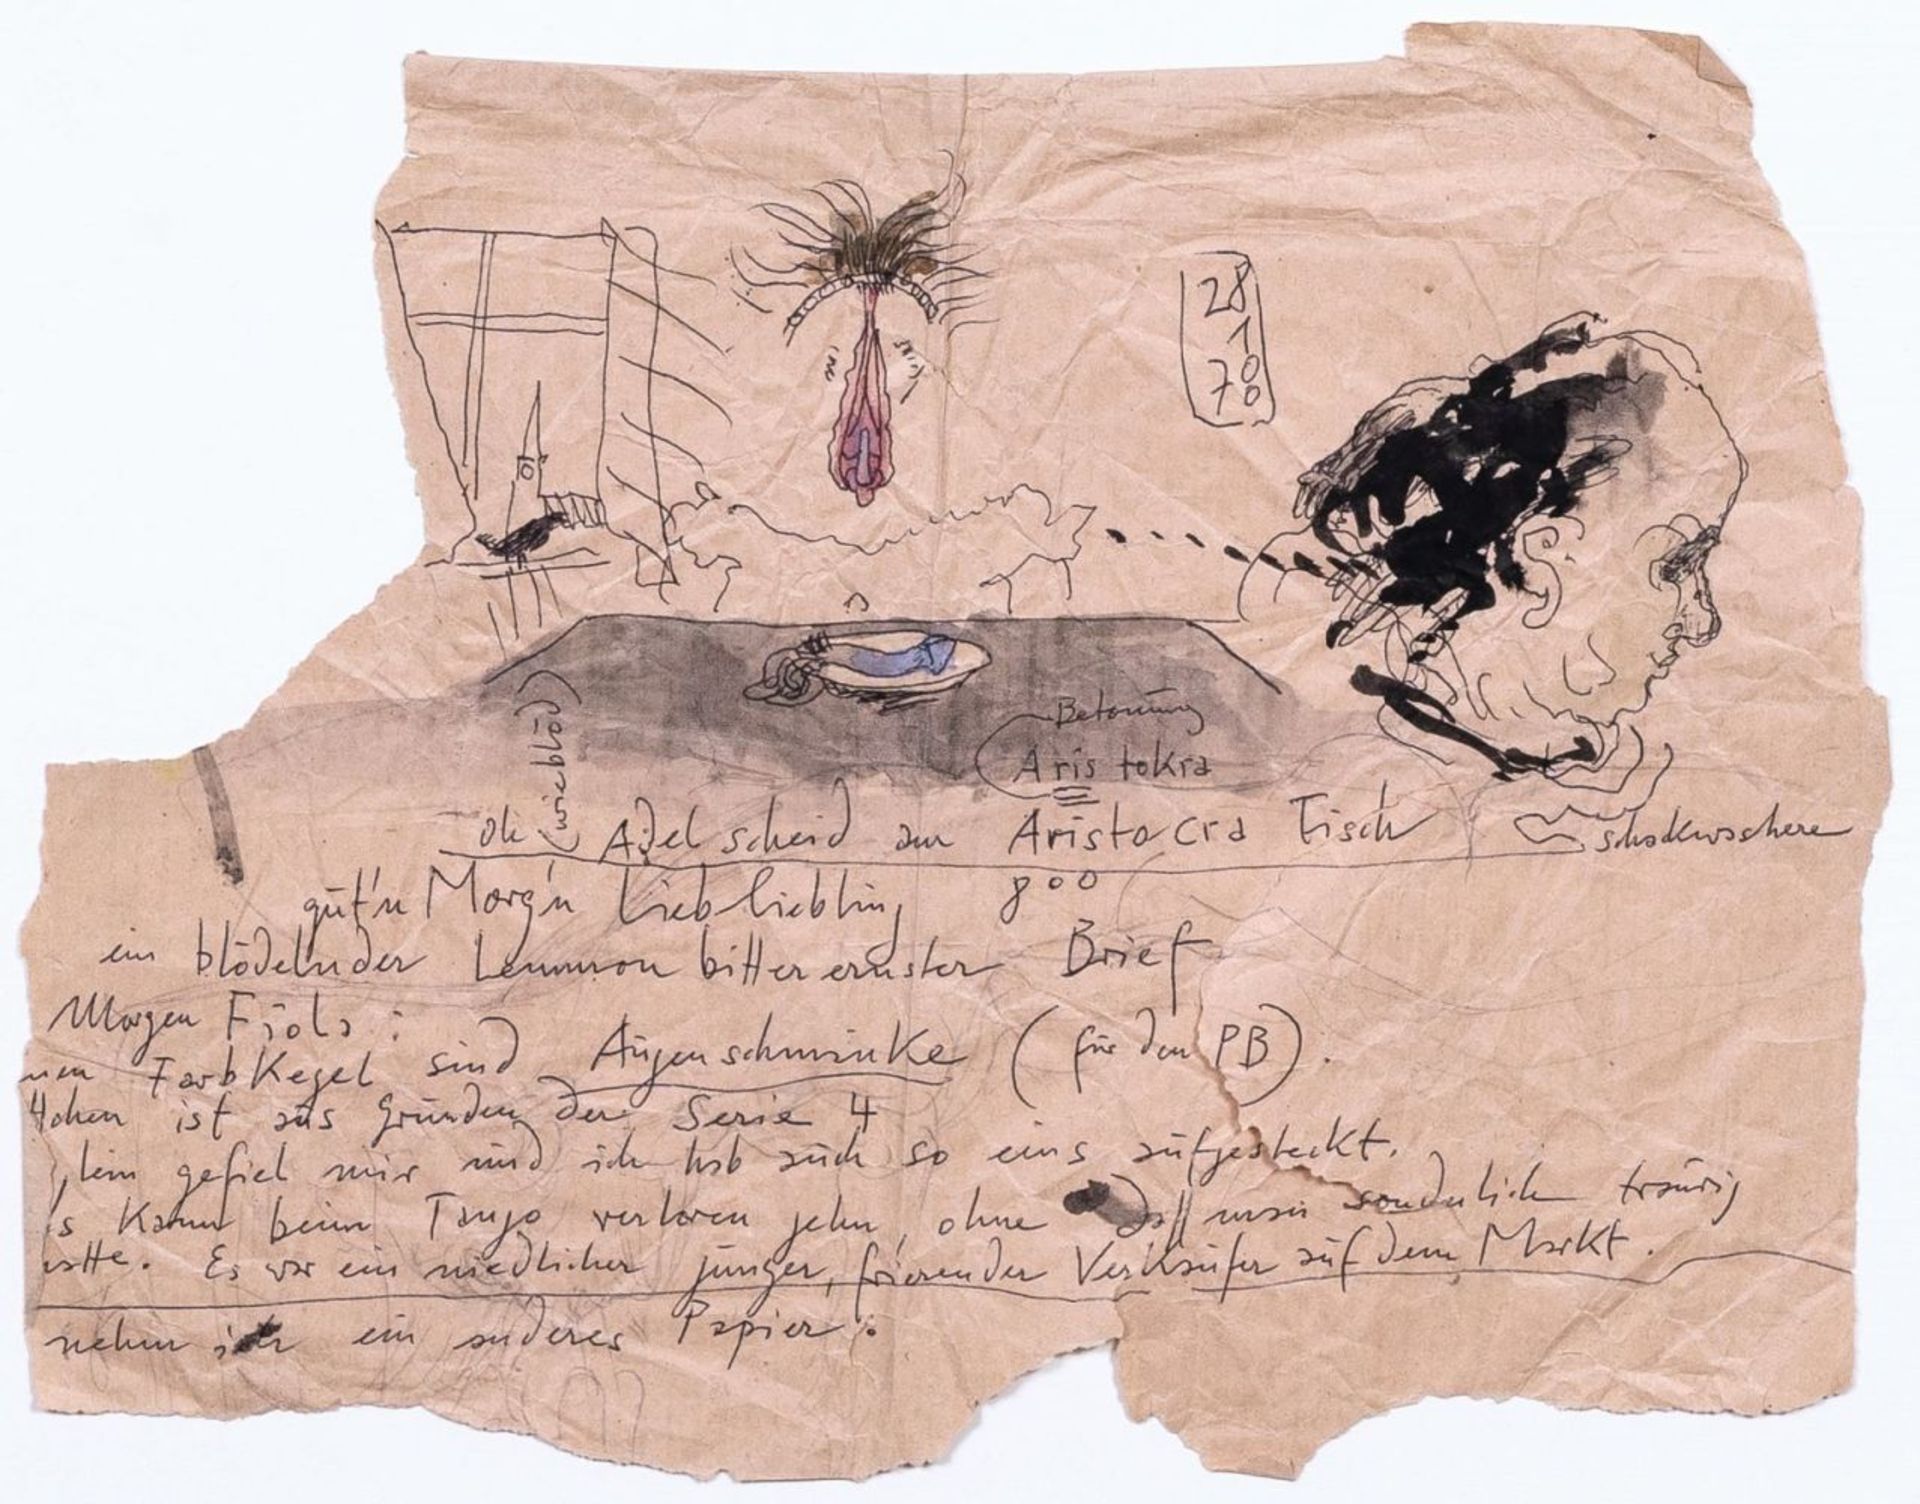 28
1
70
Betonung
Aris tokra
oh (wie blöd) Adel scheid am Aristocra Tisch
gut'n Morg'n Lieb liebling 800
ein blödelnder Lemmon bitter ernster Brief
Morgen Fiola:
nen FarbKegel sind Augenschminke (für den PB).
ist aus Gründen der Serie 4
lein gefiel mir und ich hab auch so eins aufgesteckt.
s Kann beim Tango verloren gehn, ohne daß man sonderlich traurig
atte. Es war ein niedlicher junger, frierender Verkäufer auf dem Markt.
nehm ein anderes Papier: